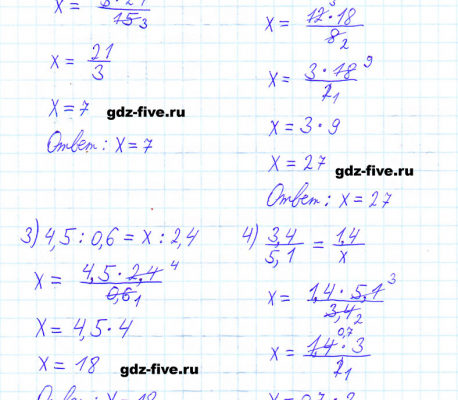 15 3
x = 21/3
x = 7
gdz-five.ru
Ответ: x = 7
x = 12³ · 18 / 8 2
x = 3 · 18 9 / 2 1
x = 3 · 9
x = 27
gdz-five.ru
Ответ: x = 27
3) 4,5 : 0,6 = x : 2,4
x = 4,5 · 2,4 4 / 0,6 1
x = 4,5 · 4
x = 18
gdz-five.ru
4) 3,4/5,1 = 1,4/x
x = 1,4 · 5,1 3 / 3,4 2
x = 1,4 0,7 · 3 / 2 1